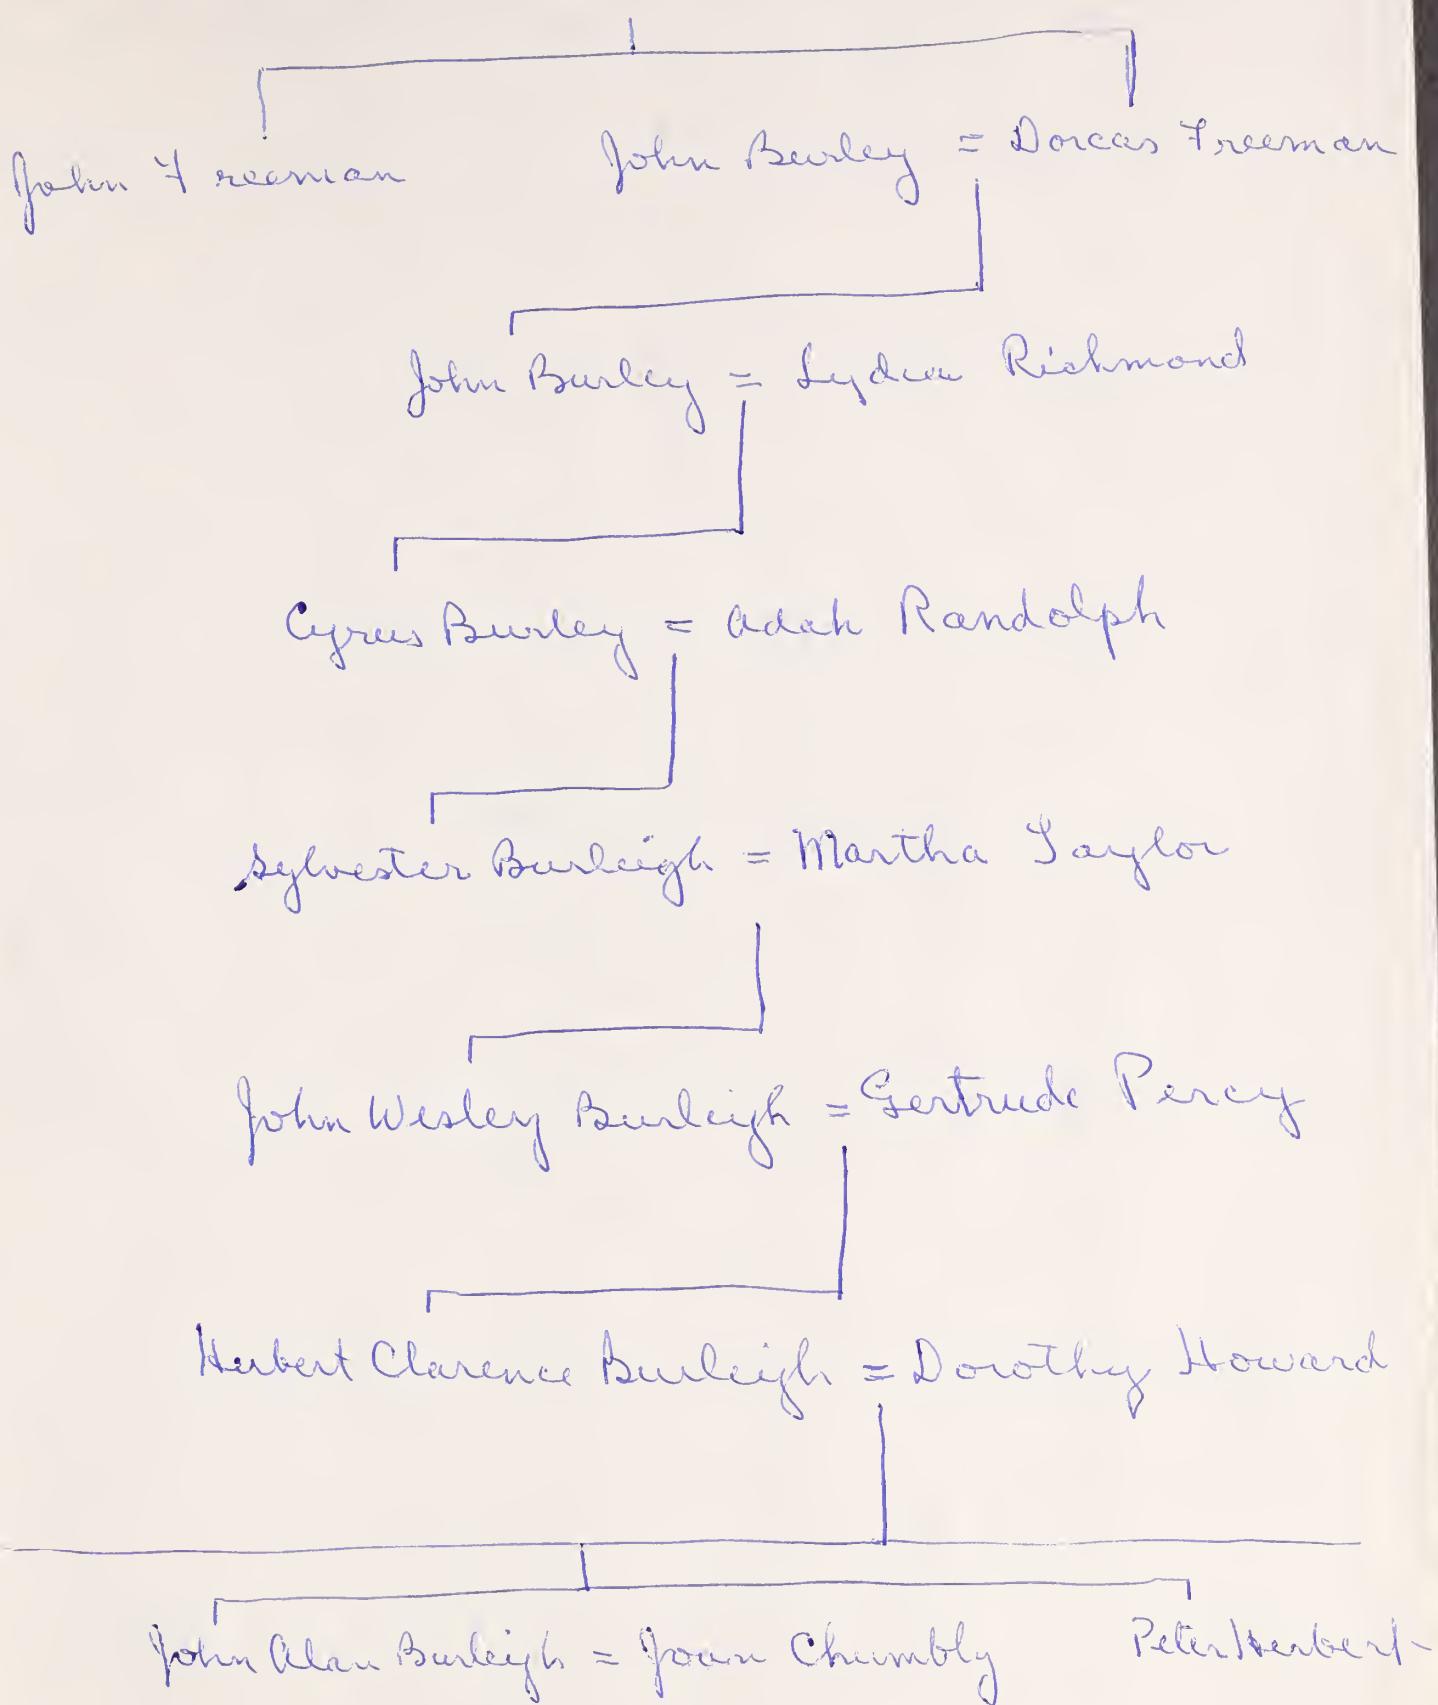 John Freeman John Burley = Dorcas Freeman
John Burley = Lydia Richmond
Cyrus Burley = Adah Randolph
Sylvester Burleigh = Martha Taylor
John Wesley Burleigh = Gertrude Percy
Herbert Clarence Burleigh = Dorothy Howard
John Alan Burleigh = Joan Chumbly Peter Herbert-